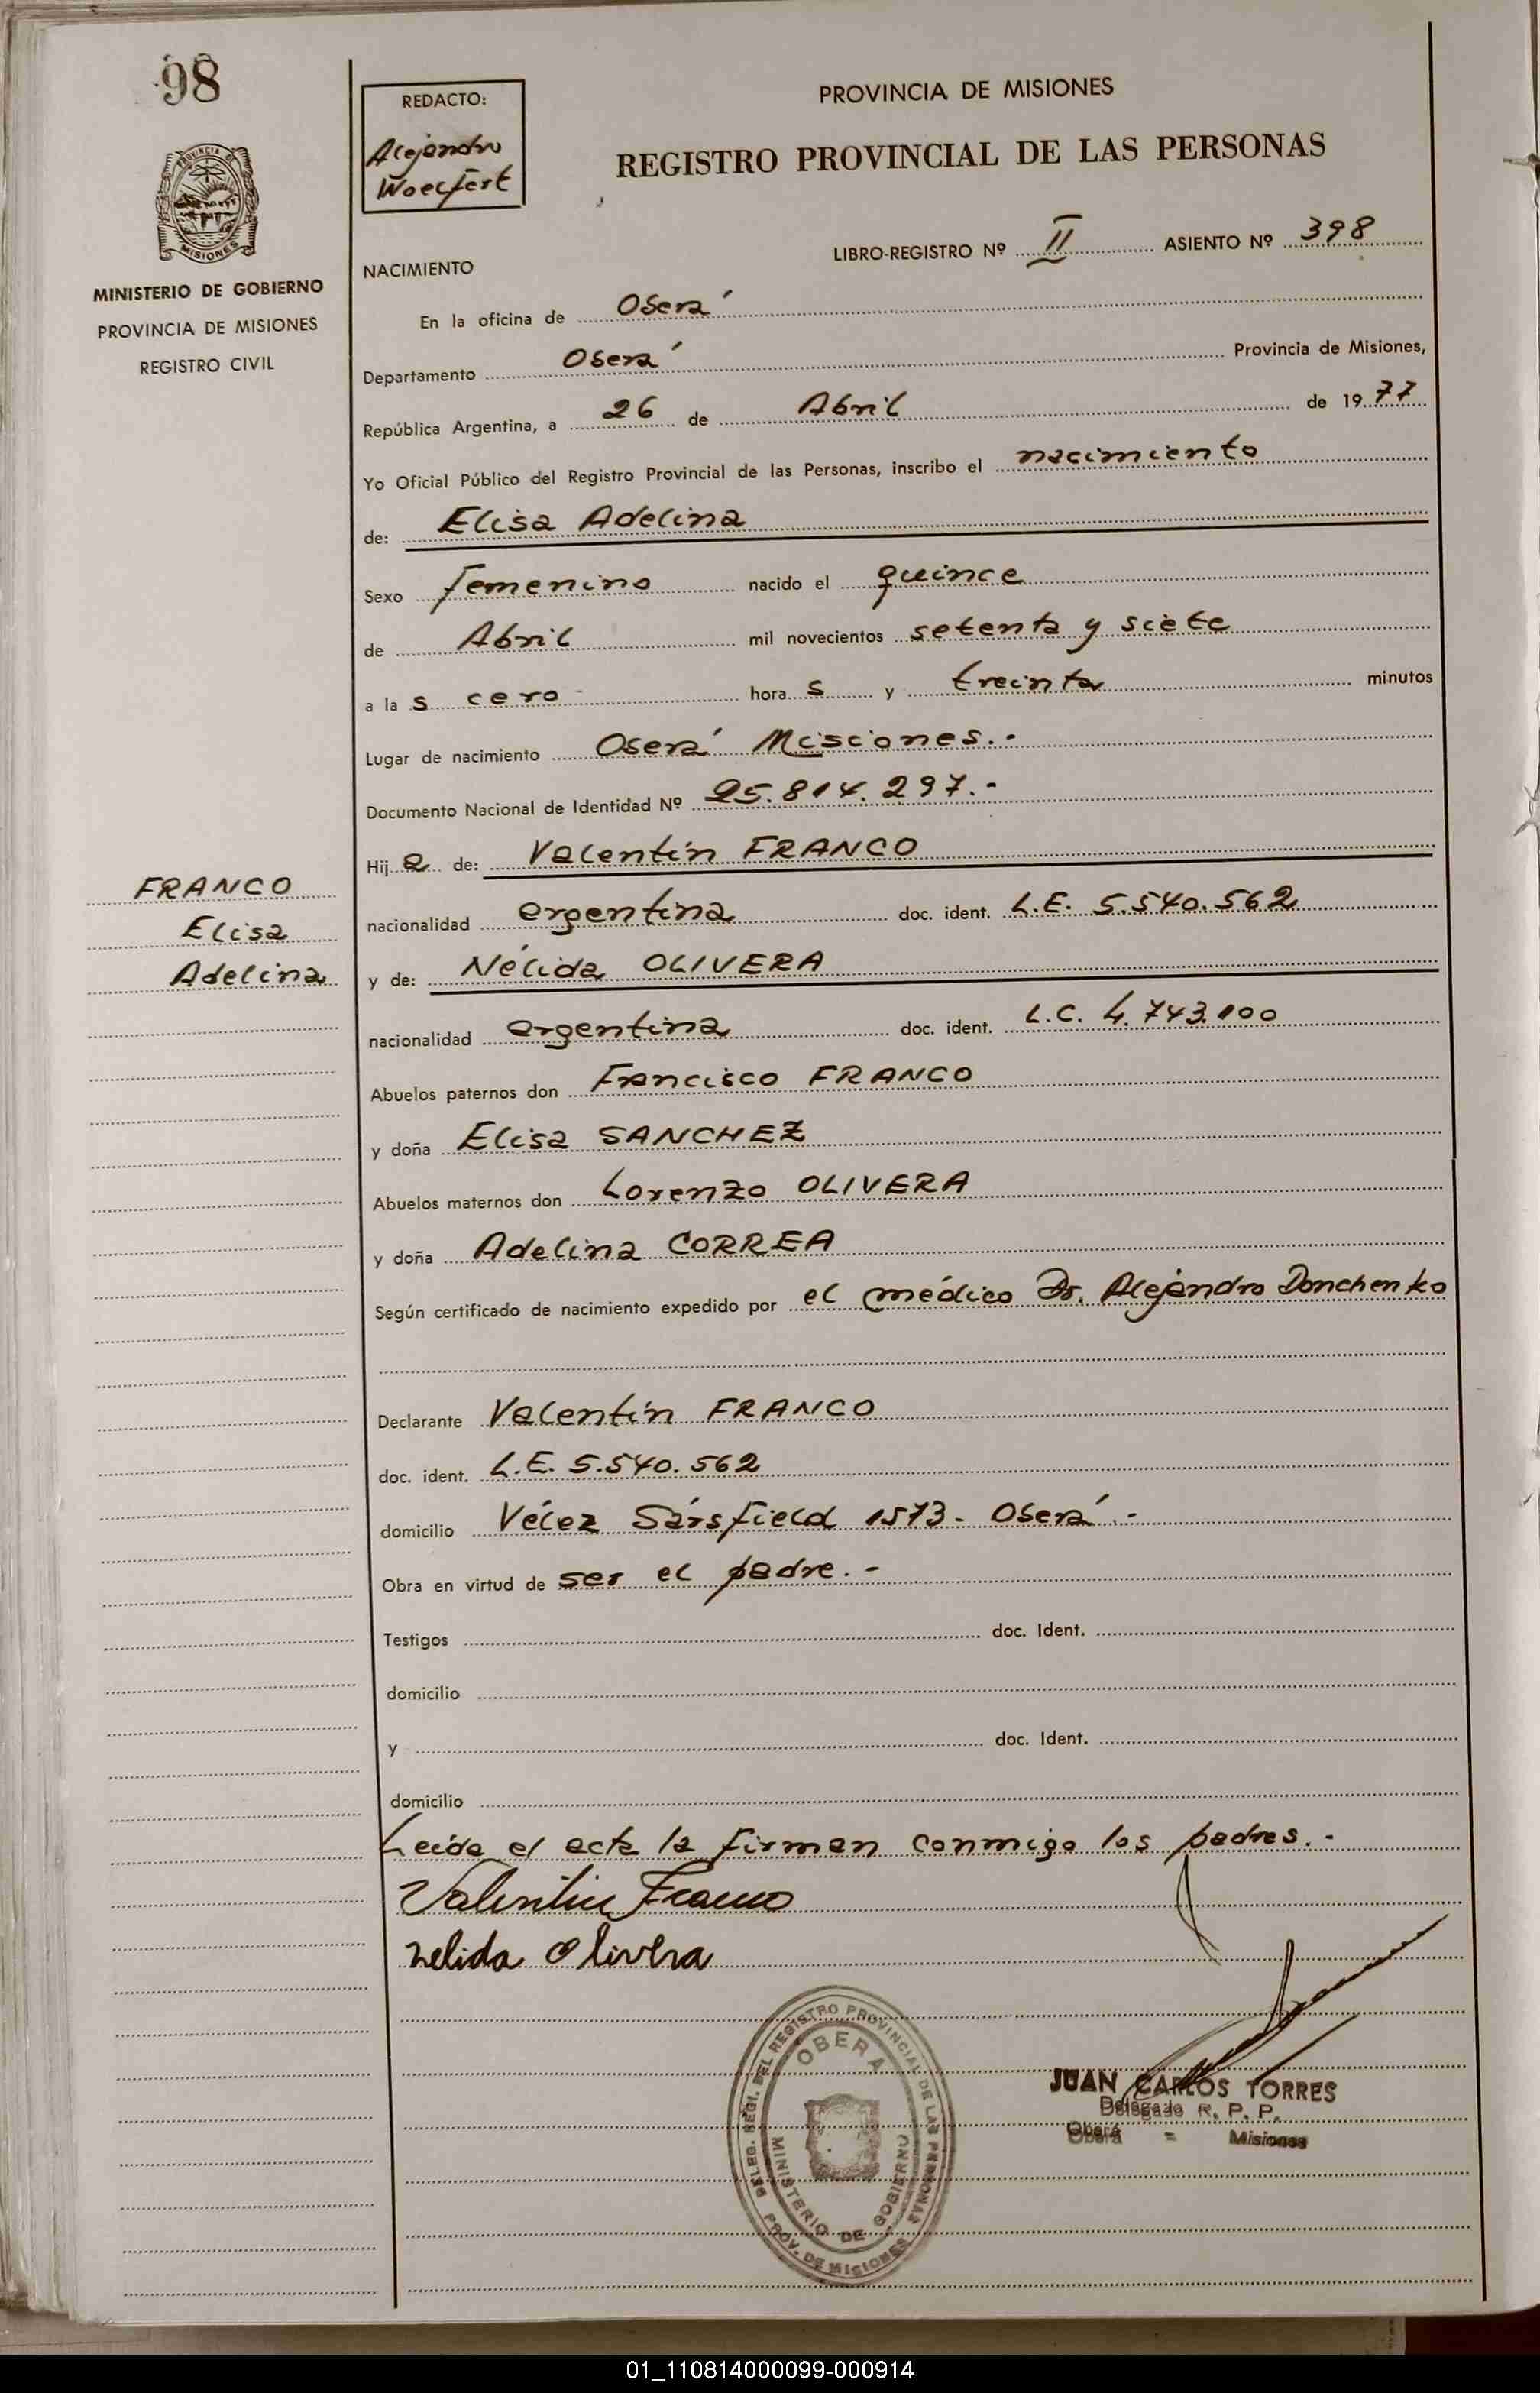 98
REDACTO:
Alejandro
Woelfert
PROVINCIA DE MISIONES
REGISTRO PROVINCIAL DE LAS PERSONAS
PROVINCIA DE
MISIONES
MINISTERIO DE GOBIERNO
PROVINCIA DE MISIONES
REGISTRO CIVIL
LIBRO-REGISTRO Nº II ASIENTO Nº 398
NACIMIENTO
En la oficina de Oberá
Departamento Oberá Provincia de Misiones,
República Argentina, a 26 de Abril de 1977
Yo Oficial Público del Registro Provincial de las Personas, inscribo el nacimiento
de: Elisa Adelina
Sexo femenino nacido el quince
de Abril mil novecientos setenta y siete
a la s cero hora s y treinta minutos
Lugar de nacimiento Oberá Misiones.-
Documento Nacional de Identidad Nº 25.814.297.-
Hij a de: Valentín FRANCO
FRANCO
Elisa
Adelina
nacionalidad argentina doc. ident. L.E. 5.540.562
y de: Nélida OLIVERA
nacionalidad argentina doc. ident. L.C. 4.743.100
Abuelos paternos don Francisco FRANCO
y doña Elisa SANCHEZ
Abuelos maternos don Lorenzo OLIVERA
y doña Adelina CORREA
Según certificado de nacimiento expedido por el médico Dr. Alejandro Donchenko
Declarante Valentín FRANCO
doc. ident. L.E. 5.540.562
domicilio Vélez Sársfield 1573- Oberá.-
Obra en virtud de ser el padre.-
Testigos doc. Ident.
domicilio
y doc. Ident.
domicilio
Leída el acta la firman conmigo los padres.-
Valentin Franco
nelida Olivera
DELEG. REGI. DEL REGISTRO PROVINCIAL DE LAS PERSONAS
OBERA
MINISTERIO DE GOBIERNO
PROV. DE MISIONES
JUAN CARLOS TORRES
Delegado R. P. P.
Oberá - Misiones
01_110814000099-000914